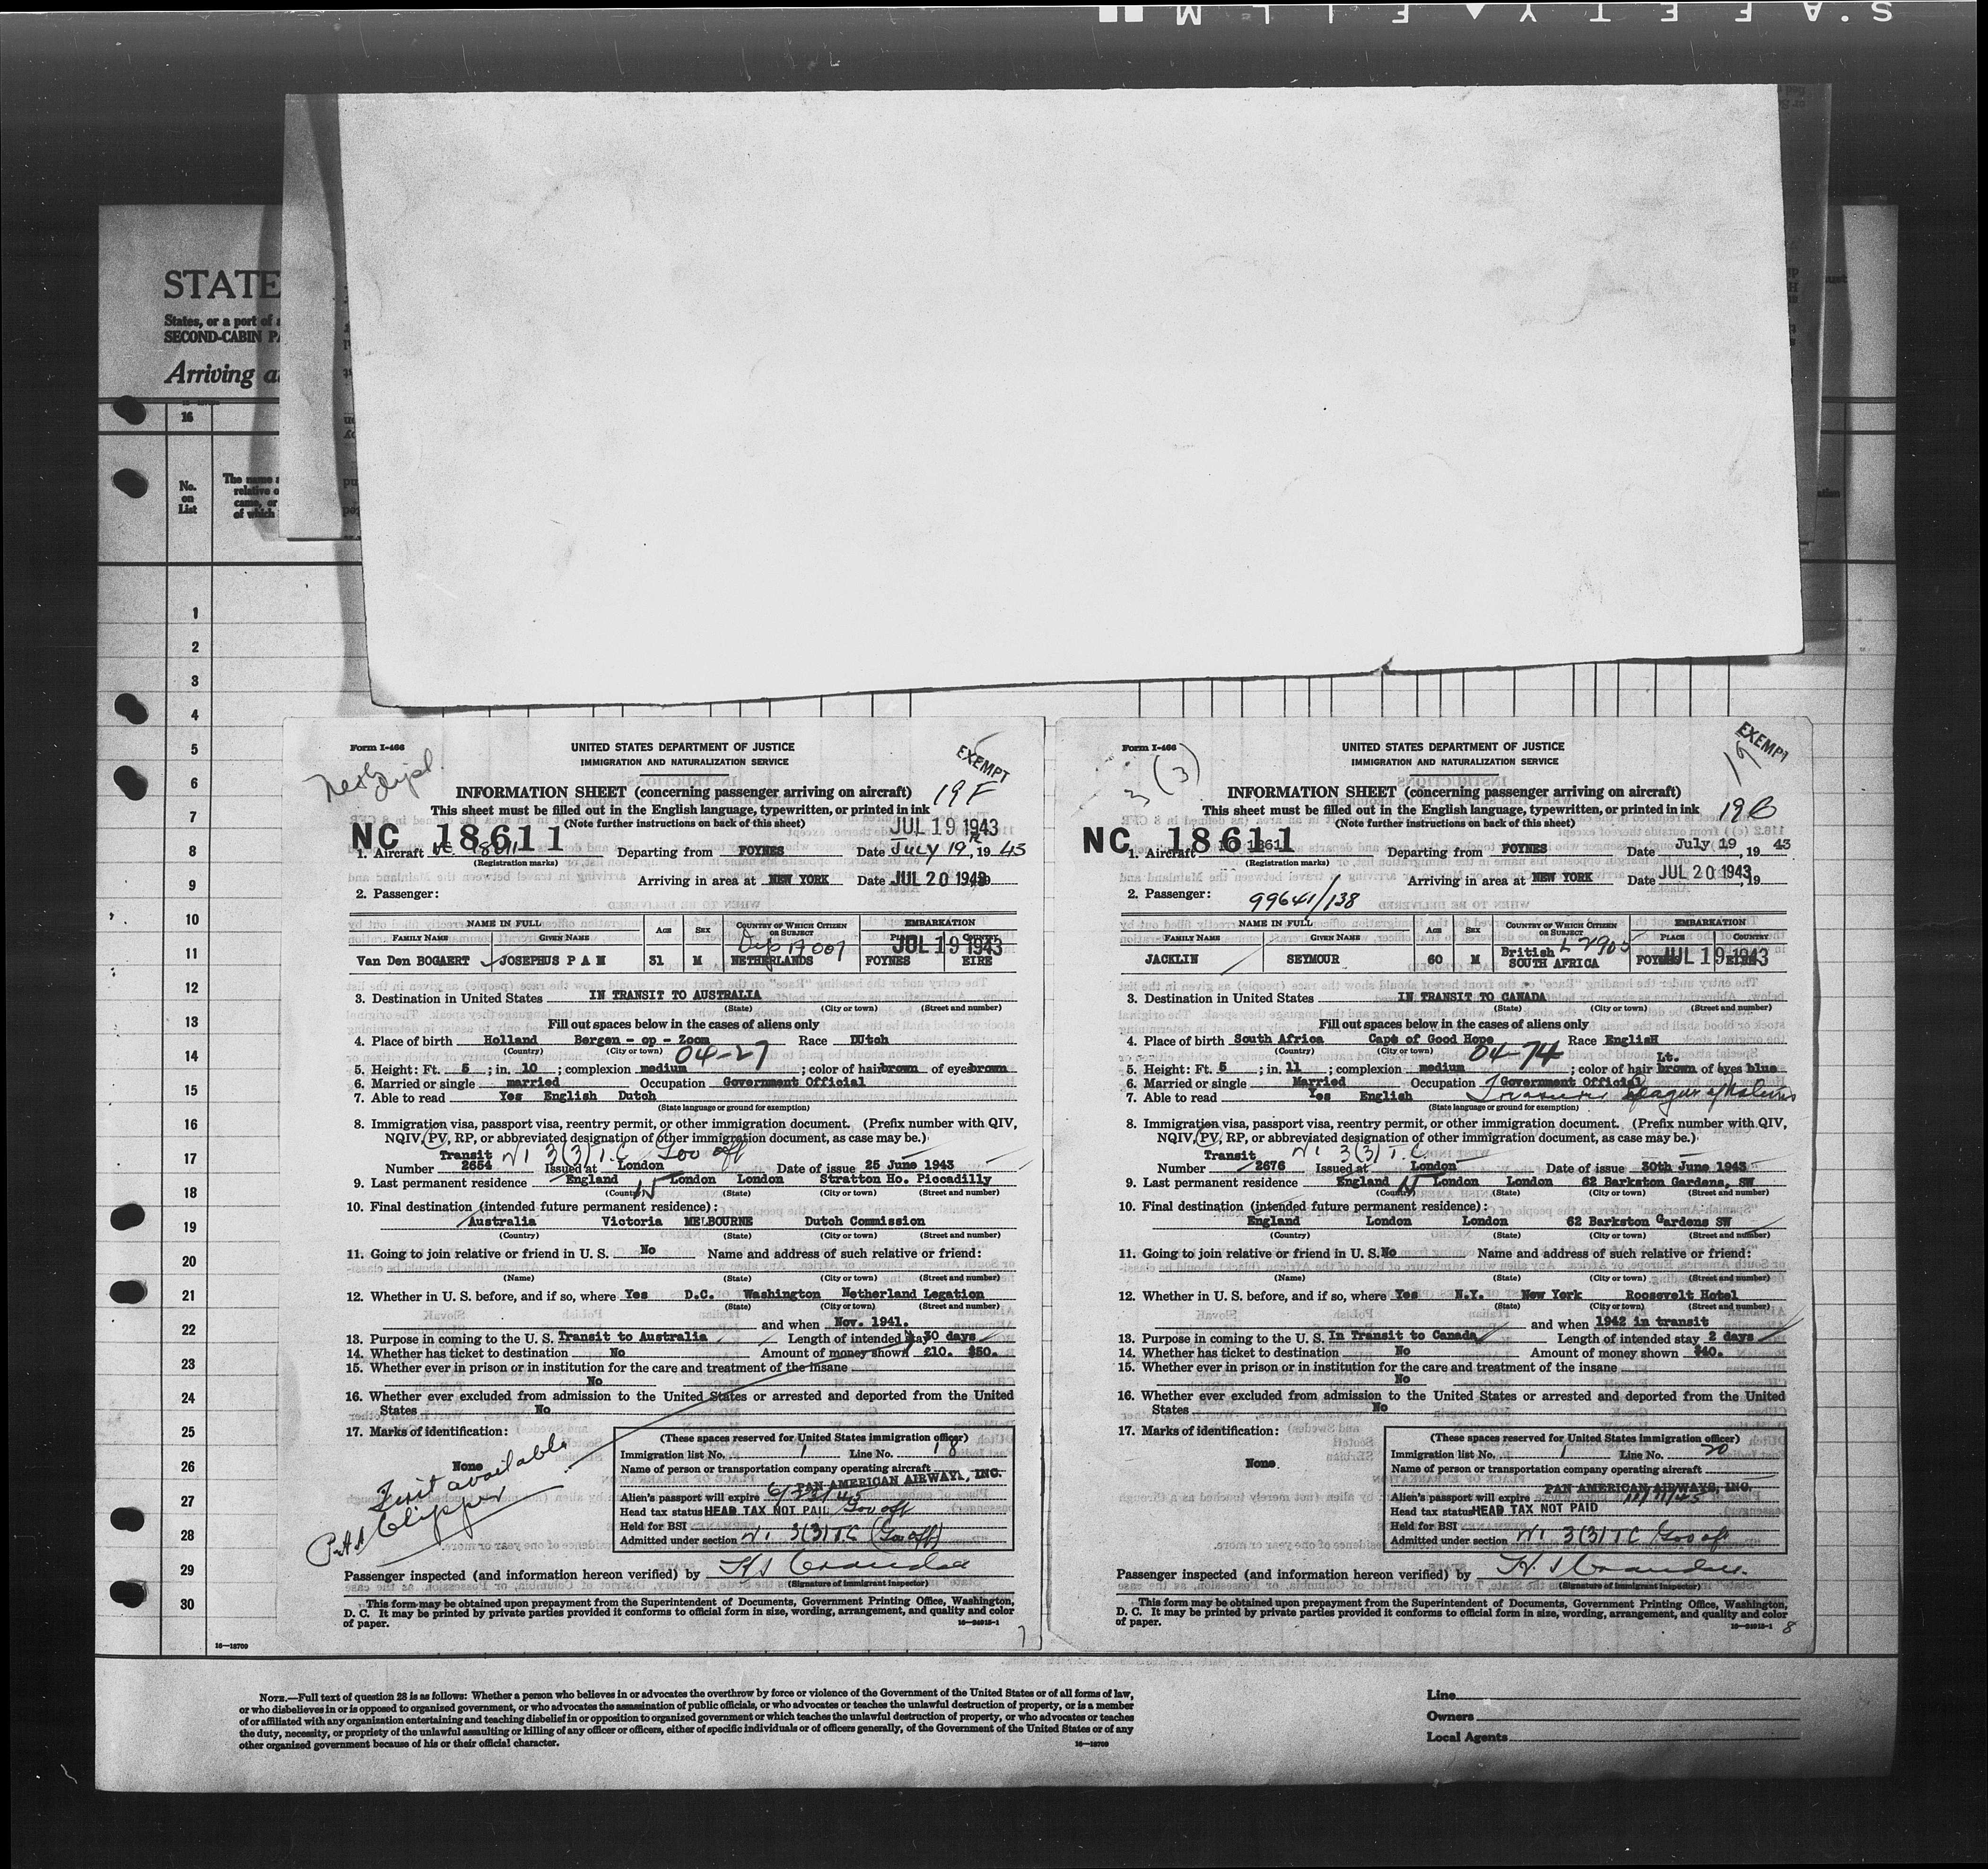 SAFETY FILM
STATE
States, or a port of
SECOND-CABIN
Arriving
16
No.
on
List
The name
relative
came, or
of which
1
2
3
4
5
6
7
8
9
10
11
12
13
14
15
16
17
18
19
20
21
22
23
24
25
26
27
28
29
30
16—18709
Form I-466
UNITED STATES DEPARTMENT OF JUSTICE
IMMIGRATION AND NATURALIZATION SERVICE
EXEMPT
INFORMATION SHEET (concerning passenger arriving on aircraft)
19 F
This sheet must be filled out in the English language, typewritten, or printed in ink
(Note further instructions on back of this sheet)
JUL 19 1943
NC 18611
1. Aircraft NC 18611 Departing from FOYNES Date July 19, 1943
(Registration marks)
Arriving in area at NEW YORK Date JUL 20 1943, 19
2. Passenger:
NAME IN FULL AGE SEX COUNTRY OF WHICH CITIZEN OR SUBJECT EMBARKATION
FAMILY NAME GIVEN NAME PLACE COUNTRY
JUL 19 1943
Van Den BOGAERT JOSEPHUS P A M 31 M NETHERLANDS FOYNES EIRE
3. Destination in United States IN TRANSIT TO AUSTRALIA
(State) (City or town) (Street and number)
Fill out spaces below in the cases of aliens only
4. Place of birth Holland Bergen - op - Zoom Race DUtch
(Country) (City or town) 04-27
5. Height: Ft. 5; in. 10; complexion medium; color of hair brown of eyes brown
6. Married or single married Occupation Government Official
7. Able to read Yes English Dutch
(State language or ground for exemption)
8. Immigration visa, passport visa, reentry permit, or other immigration document. (Prefix number with QIV,
NQIV, PV, RP, or abbreviated designation of other immigration document, as case may be.)
Transit 3(3) T.C Gov off
Number 2654 Issued at London Date of issue 25 June 1943
9. Last permanent residence England London London Stratton Ho. Piccadilly
(Country) (State) (City or town) (Street and number)
10. Final destination (intended future permanent residence):
Australia Victoria MELBOURNE Dutch Commission
(Country) (State) (City or town) (Street and number)
11. Going to join relative or friend in U. S. No Name and address of such relative or friend:
(Name) (State) (City or town) (Street and number)
12. Whether in U. S. before, and if so, where Yes D.C. Washington Netherland Legation
(State) (City or town) (Street and number)
and when Nov. 1941.
13. Purpose in coming to the U. S. Transit to Australia Length of intended stay 30 days
14. Whether has ticket to destination No Amount of money shown £10. $50.
15. Whether ever in prison or in institution for the care and treatment of the insane
No
16. Whether ever excluded from admission to the United States or arrested and deported from the United
States No
17. Marks of identification:
None
First available
PAA Clipper
(These spaces reserved for United States immigration officer)
Immigration list No. 1 Line No. 18
Name of person or transportation company operating aircraft
PAN AMERICAN AIRWAYS, INC.
Alien's passport will expire
Head tax status HEAD TAX NOT PAID Gov off
Held for BSI
Admitted under section 3(3) T.C (Gov off)
Passenger inspected (and information hereon verified) by
(Signature of immigrant inspector)
This form may be obtained upon prepayment from the Superintendent of Documents, Government Printing Office, Washington,
D. C. It may be printed by private parties provided it conforms to official form in size, wording, arrangement, and quality and color
of paper.
7
Form I-466
(3)
UNITED STATES DEPARTMENT OF JUSTICE
IMMIGRATION AND NATURALIZATION SERVICE
EXEMPT
19
INFORMATION SHEET (concerning passenger arriving on aircraft)
This sheet must be filled out in the English language, typewritten, or printed in ink
(Note further instructions on back of this sheet)
NC 18611
1. Aircraft Departing from FOYNES Date July 19, 1943
(Registration marks)
Arriving in area at NEW YORK Date JUL 20 1943, 19
2. Passenger:
99641/138
NAME IN FULL AGE SEX COUNTRY OF WHICH CITIZEN OR SUBJECT EMBARKATION
FAMILY NAME GIVEN NAME PLACE COUNTRY
JACKLIN SEYMOUR 60 M British SOUTH AFRICA FOYNES JUL 19 1943 EIRE
3. Destination in United States IN TRANSIT TO CANADA
(State) (City or town) (Street and number)
Fill out spaces below in the cases of aliens only
4. Place of birth South Africa Cape of Good Hope Race EnglisH
(Country) (City or town) 04-74
5. Height: Ft. 5; in. 11; complexion medium; color of hair Lt. brown of eyes blue
6. Married or single Married Occupation Government Official
7. Able to read Yes English Treasurer League of Nations
(State language or ground for exemption)
8. Immigration visa, passport visa, reentry permit, or other immigration document. (Prefix number with QIV,
NQIV, PV, RP, or abbreviated designation of other immigration document, as case may be.)
Transit 3(3) T.C.
Number 2676 Issued at London Date of issue 30th June 1943
9. Last permanent residence England London London 62 Barkston Gardens, SW
(Country) (State) (City or town) (Street and number)
10. Final destination (intended future permanent residence):
England London London 62 Barkston Gardens SW
(Country) (State) (City or town) (Street and number)
11. Going to join relative or friend in U. S. No Name and address of such relative or friend:
(Name) (State) (City or town) (Street and number)
12. Whether in U. S. before, and if so, where Yes N.Y. New York Roosevelt Hotel
(State) (City or town) (Street and number)
and when 1942 in transit
13. Purpose in coming to the U. S. In Transit to Canada Length of intended stay 2 days
14. Whether has ticket to destination No Amount of money shown $40.
15. Whether ever in prison or in institution for the care and treatment of the insane
No
16. Whether ever excluded from admission to the United States or arrested and deported from the United
States No
17. Marks of identification:
None
(These spaces reserved for United States immigration officer)
Immigration list No. 1 Line No. 20
Name of person or transportation company operating aircraft
PAN AMERICAN AIRWAYS, INC.
Alien's passport will expire 11/11/45
Head tax status HEAD TAX NOT PAID
Held for BSI
Admitted under section 3(3) TC Gov off
Passenger inspected (and information hereon verified) by
(Signature of immigrant inspector)
This form may be obtained upon prepayment from the Superintendent of Documents, Government Printing Office, Washington,
D. C. It may be printed by private parties provided it conforms to official form in size, wording, arrangement, and quality and color
of paper.
8
NOTE.—Full text of question 28 is as follows: Whether a person who believes in or advocates the overthrow by force or violence of the Government of the United States or of all forms of law,
or who disbelieves in or is opposed to organized government, or who advocates the assassination of public officials, or who advocates or teaches the unlawful destruction of property, or is a member
of or affiliated with any organization entertaining and teaching disbelief in or opposition to organized government or which teaches the unlawful destruction of property, or who advocates or teaches
the duty, necessity, or propriety of the unlawful assaulting or killing of any officer or officers, either of specific individuals or of officers generally, of the Government of the United States or of any
other organized government because of his or their official character.
16—18709
Line
Owners
Local Agents